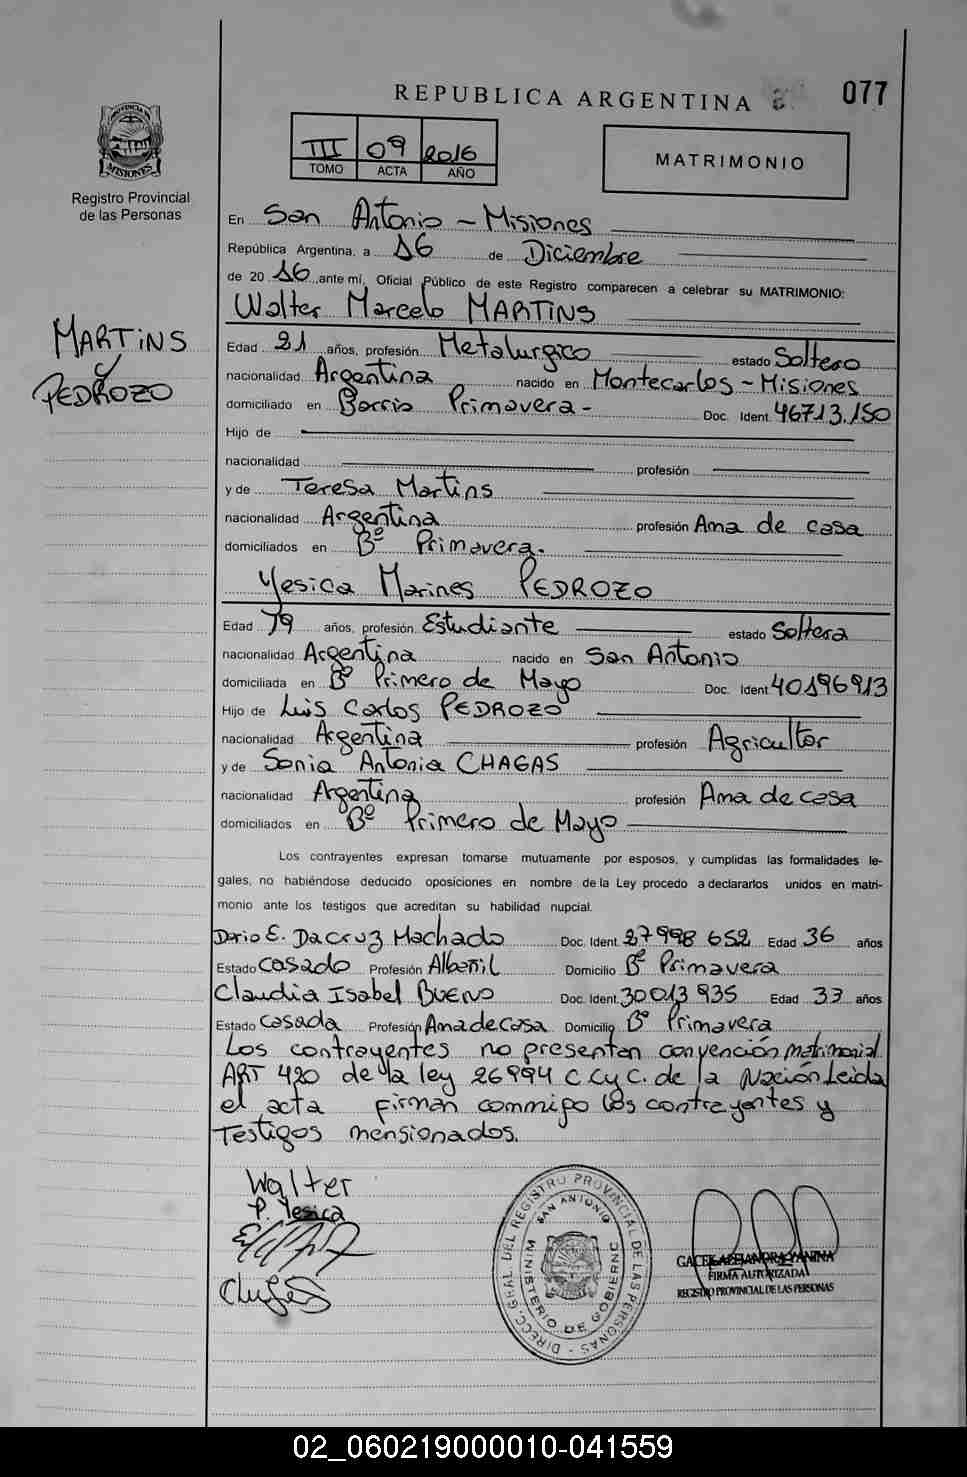 REPUBLICA ARGENTINA
077
PROVINCIA DE MISIONES
Registro Provincial
de las Personas
III 09 2016
TOMO ACTA AÑO
MATRIMONIO
En San Antonio - Misiones
República Argentina, a 16 de Diciembre
de 20 16, ante mí, Oficial Público de este Registro comparecen a celebrar su MATRIMONIO:
Walter Marcelo MARTINS
MARTINS
y
PEDROZO
Edad 21 años, profesión Metalurgico estado Soltero
nacionalidad Argentina nacido en Montecarlos - Misiones
domiciliado en Barrio Primavera - Doc. Ident. 46713.150
Hijo de
nacionalidad profesión
y de Teresa Martins
nacionalidad Argentina profesión Ama de casa
domiciliados en Bº Primavera.
Yesica Marines PEDROZO
Edad 19 años, profesión Estudiante estado Soltera
nacionalidad Argentina nacido en San Antonio
domiciliada en Bº Primero de Mayo Doc. Ident. 40196913
Hijo de Luis Carlos PEDROZO
nacionalidad Argentina profesión Agricultor
y de Sonia Antonia CHAGAS
nacionalidad Argentina profesión Ama de casa
domiciliados en Bº Primero de Mayo
Los contrayentes expresan tomarse mutuamente por esposos, y cumplidas las formalidades le-
gales, no habiéndose deducido oposiciones en nombre de la Ley procedo a declararlos unidos en matri-
monio ante los testigos que acreditan su habilidad nupcial.
Dario E. Dacruz Machado Doc. Ident. 27998 652 Edad 36 años
Estado Casado Profesión Albañil Domicilio Bº Primavera
Claudia Isabel BUENO Doc. Ident. 30013 935 Edad 33 años
Estado Casada Profesión Ama de Casa Domicilio Bº Primavera
Los contrayentes no presentan convención matrimonial
ART 420 de la ley 26994 C.C y C. de la Nación Leida
el acta firman commigo los contrayentes y
Testigos mensionados.
Walter
P. Yesica
DIRECC. GRAL. DEL REGISTRO PROVINCIAL DE LAS PERSONAS -
SAN ANTONIO
MINISTERIO DE GOBIERNO
FIRMA AUTORIZADA
REGISTRO PROVINCIAL DE LAS PERSONAS
02_060219000010-041559